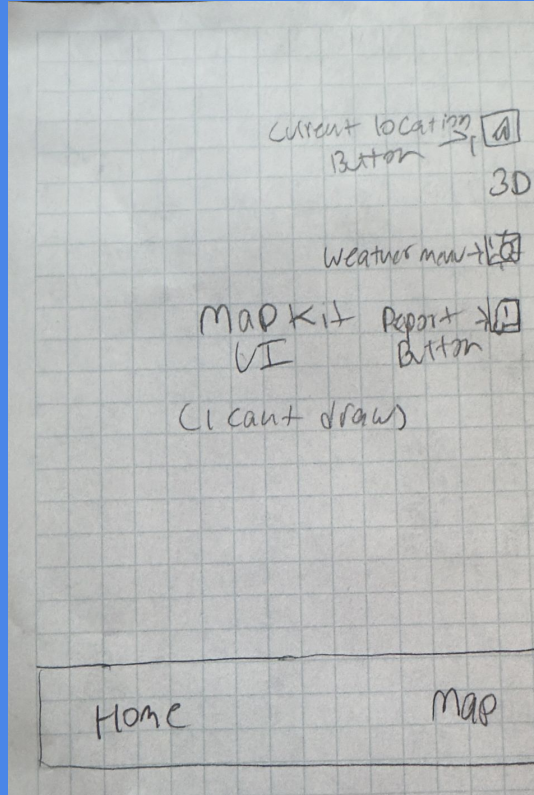 Current location
Button
3D
Weather menu
Mapkit
UI
Report
Button
(I cant draw)
Home
Map